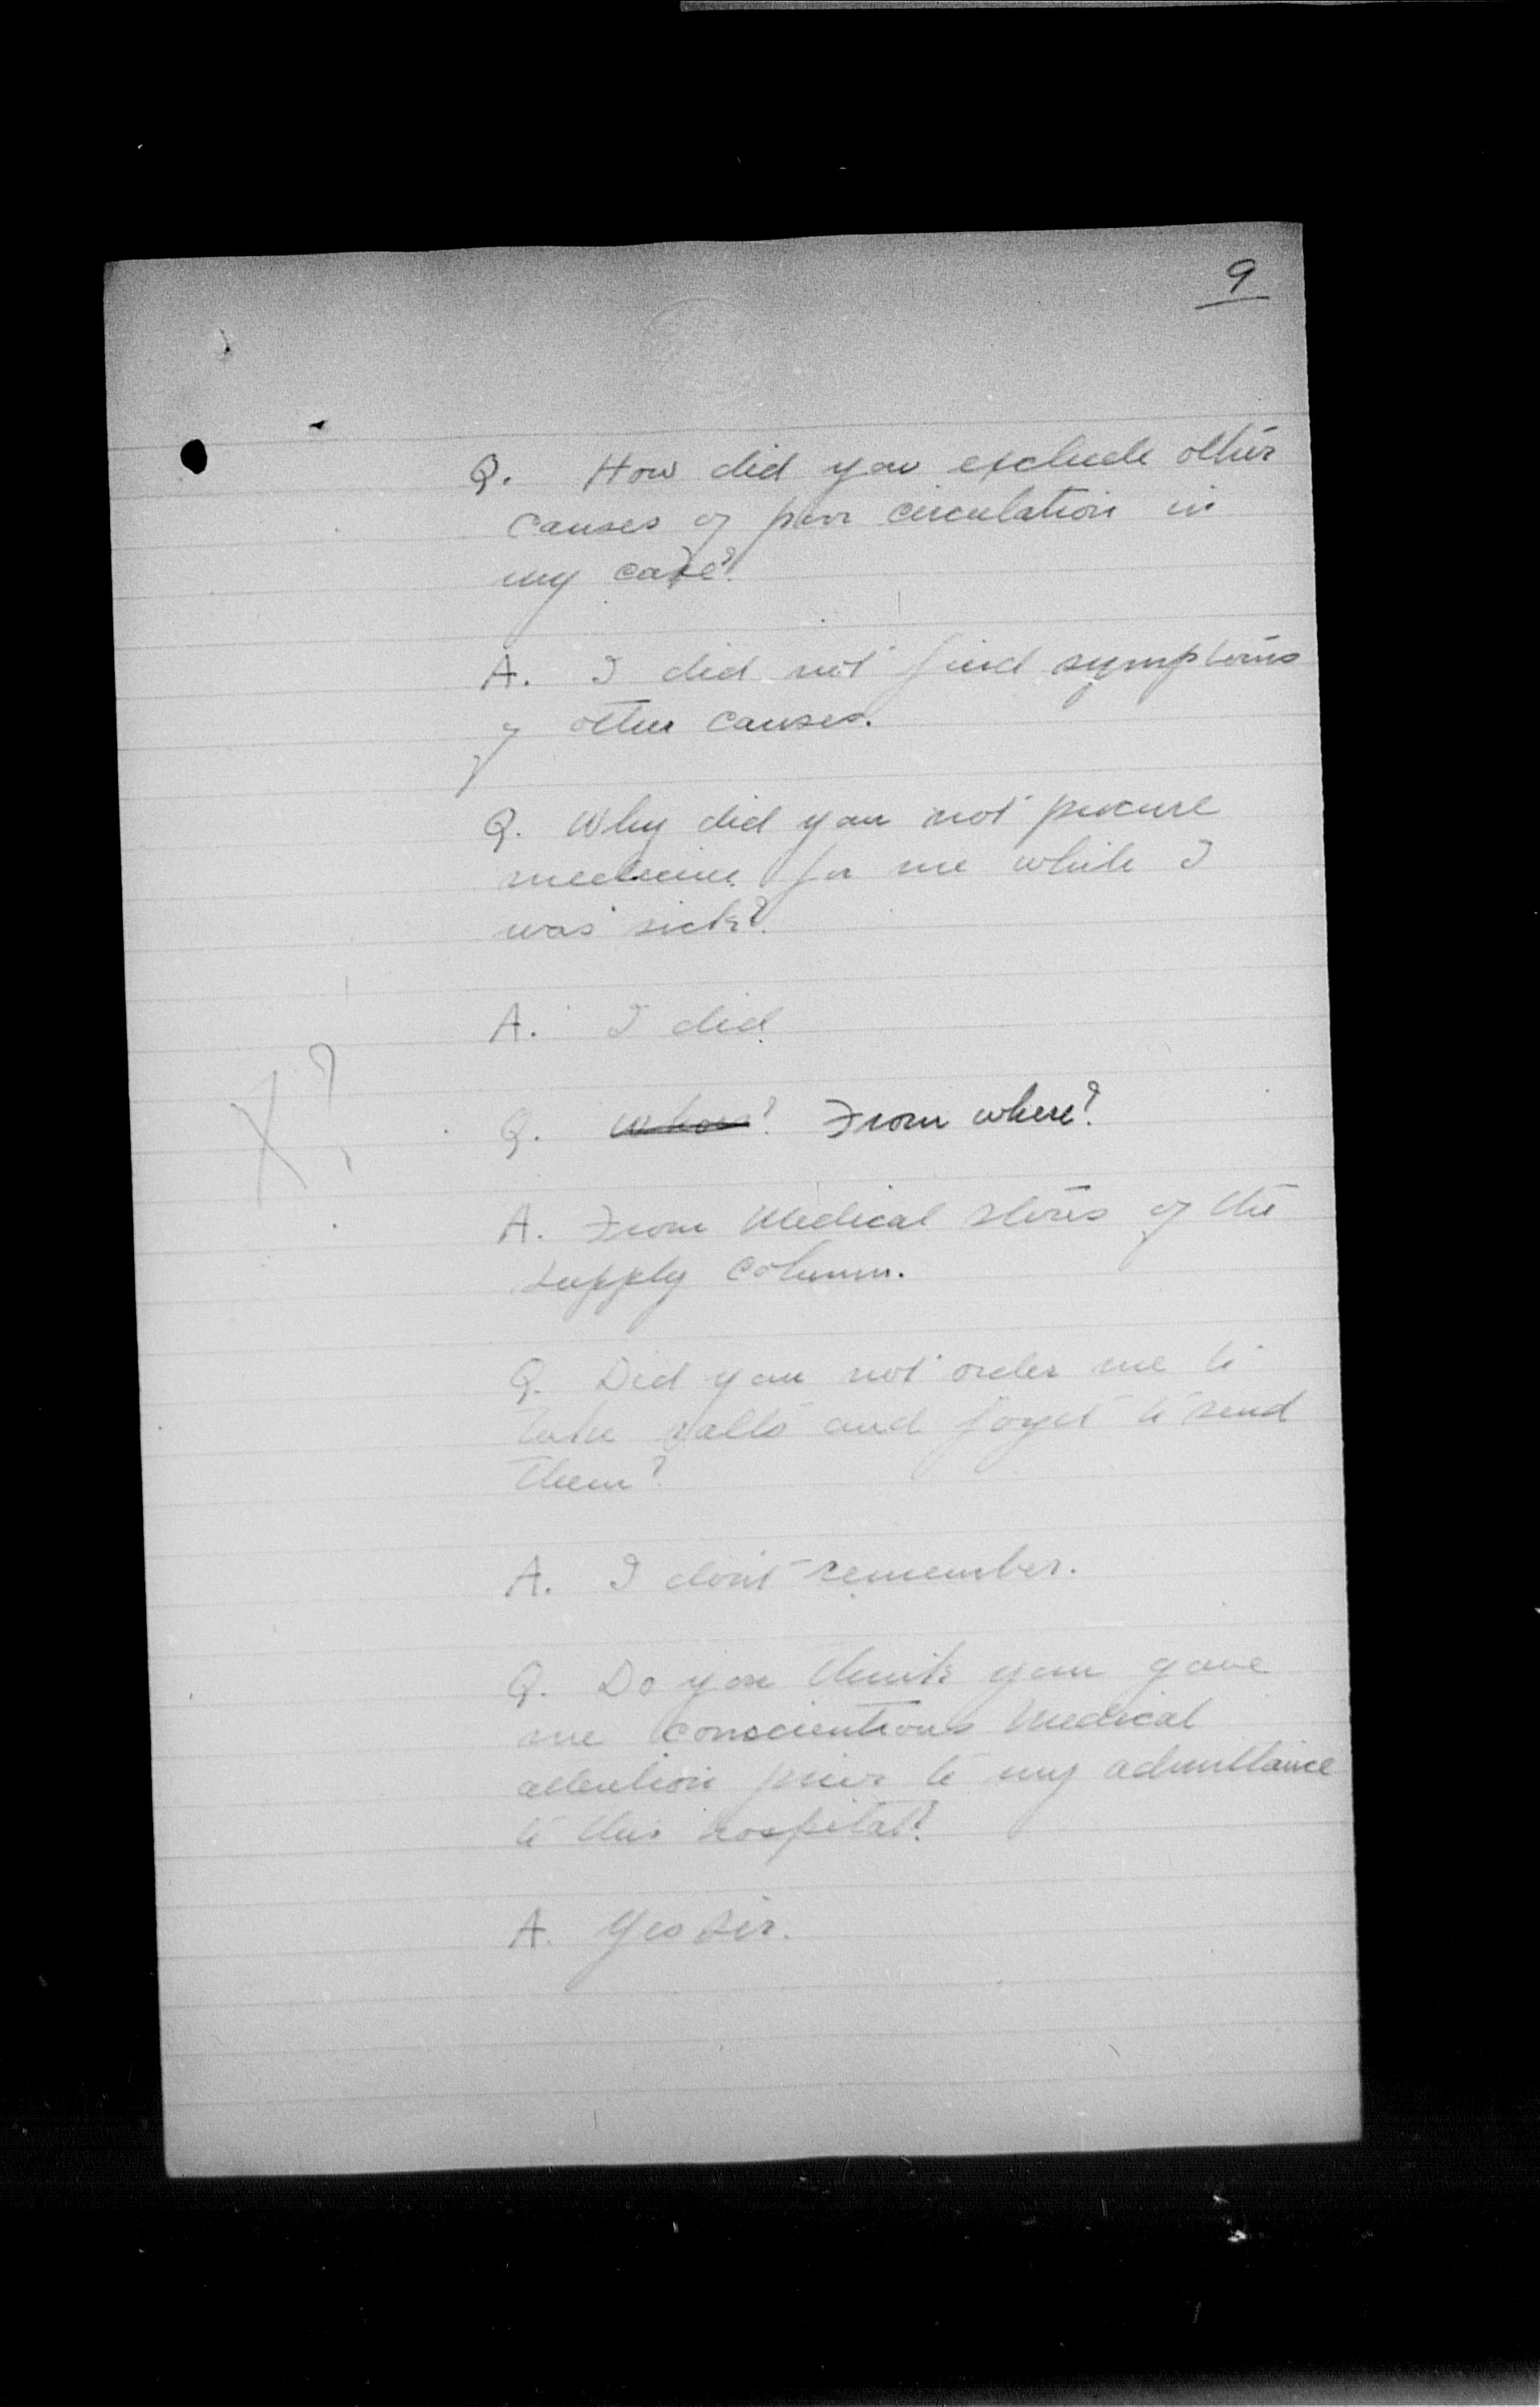 9
Q. How did you exclude other
causes of poor circulation in
my case?
A. I did not find symptoms
of other causes.
Q. Why did you not procure
medicine for me while I
was sick?
A. I did
X?
Q. From where?
A. From Medical stores of the
supply column.
Q. Did you not order me to
take salts and forget to send
them?
A. I don't remember.
Q. Do you think you gave
me conscientious Medical
attention prior to my admittance
to this hospital?
A. Yes Sir.